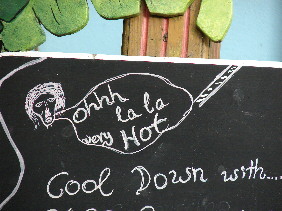 ohhh
la la
very Hot
Cool Down with....